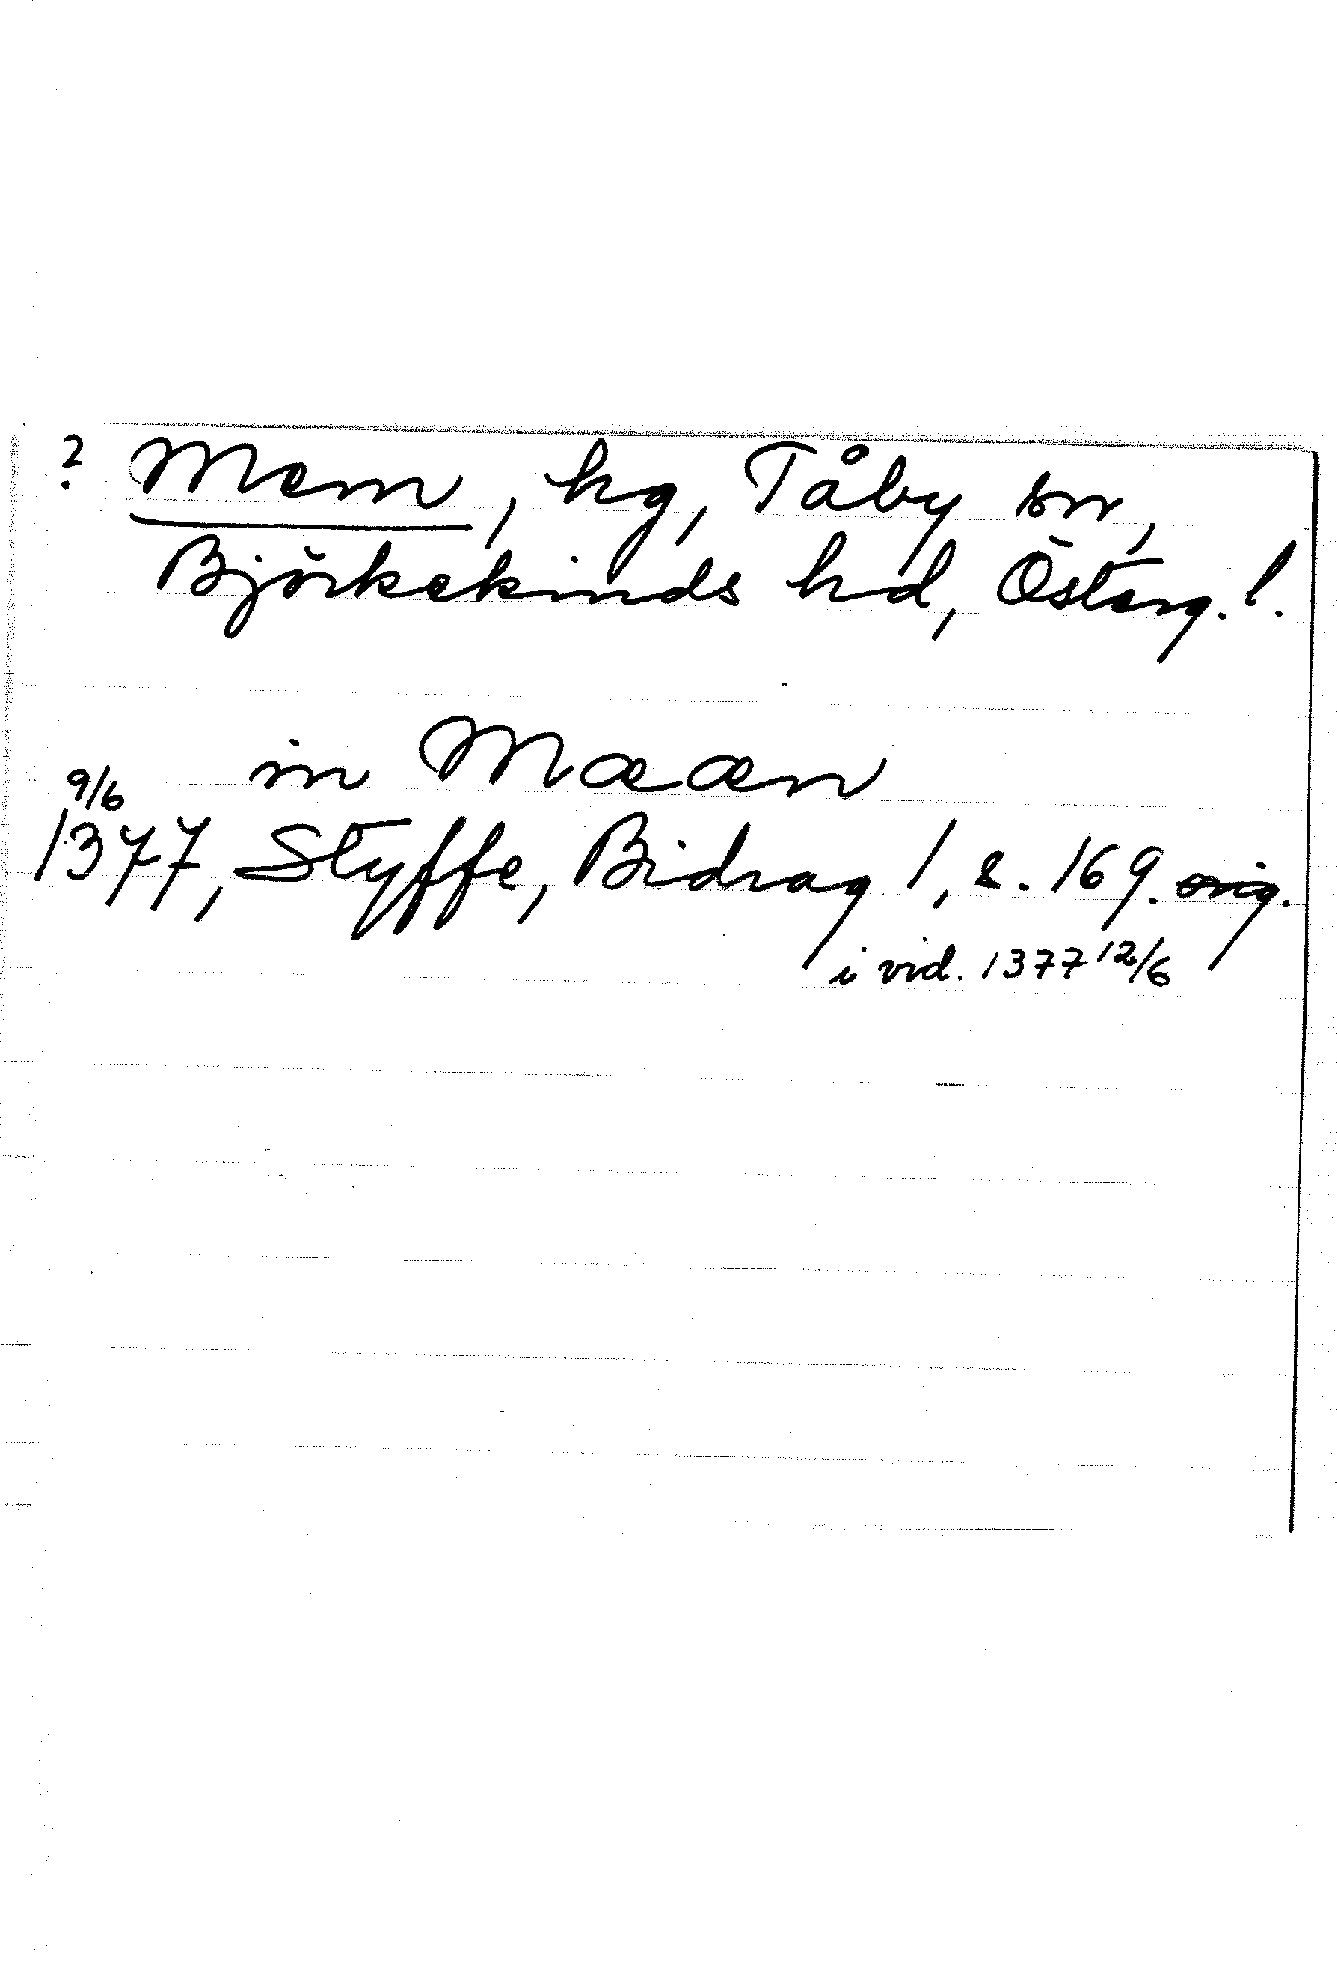 ? Mem, hg, Tåby sn,
Björkekinds hd, Österg. l.
in Mææn
9/6
1377, Styffe, Bidrag 1, s. 169. orig.
i vid. 1377 12/6